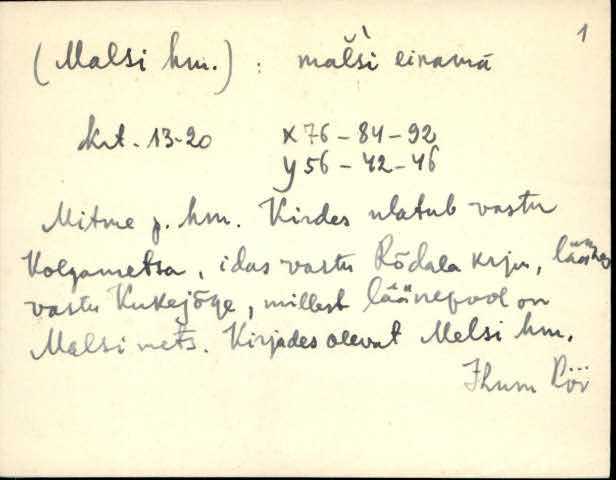 1
(Malsi hm.) : malši einamā
krt. 13-20 X 76 - 84 - 92
y 56 - 42 - 46
Mitme p. hm. Kirdes ulatub vastu
Kolgametsa, idas vastu Rõdala krju, läänes
vastu Kukejõge, millest läänepool on
Malsi mets. Kirjades olevat Melsi hm.